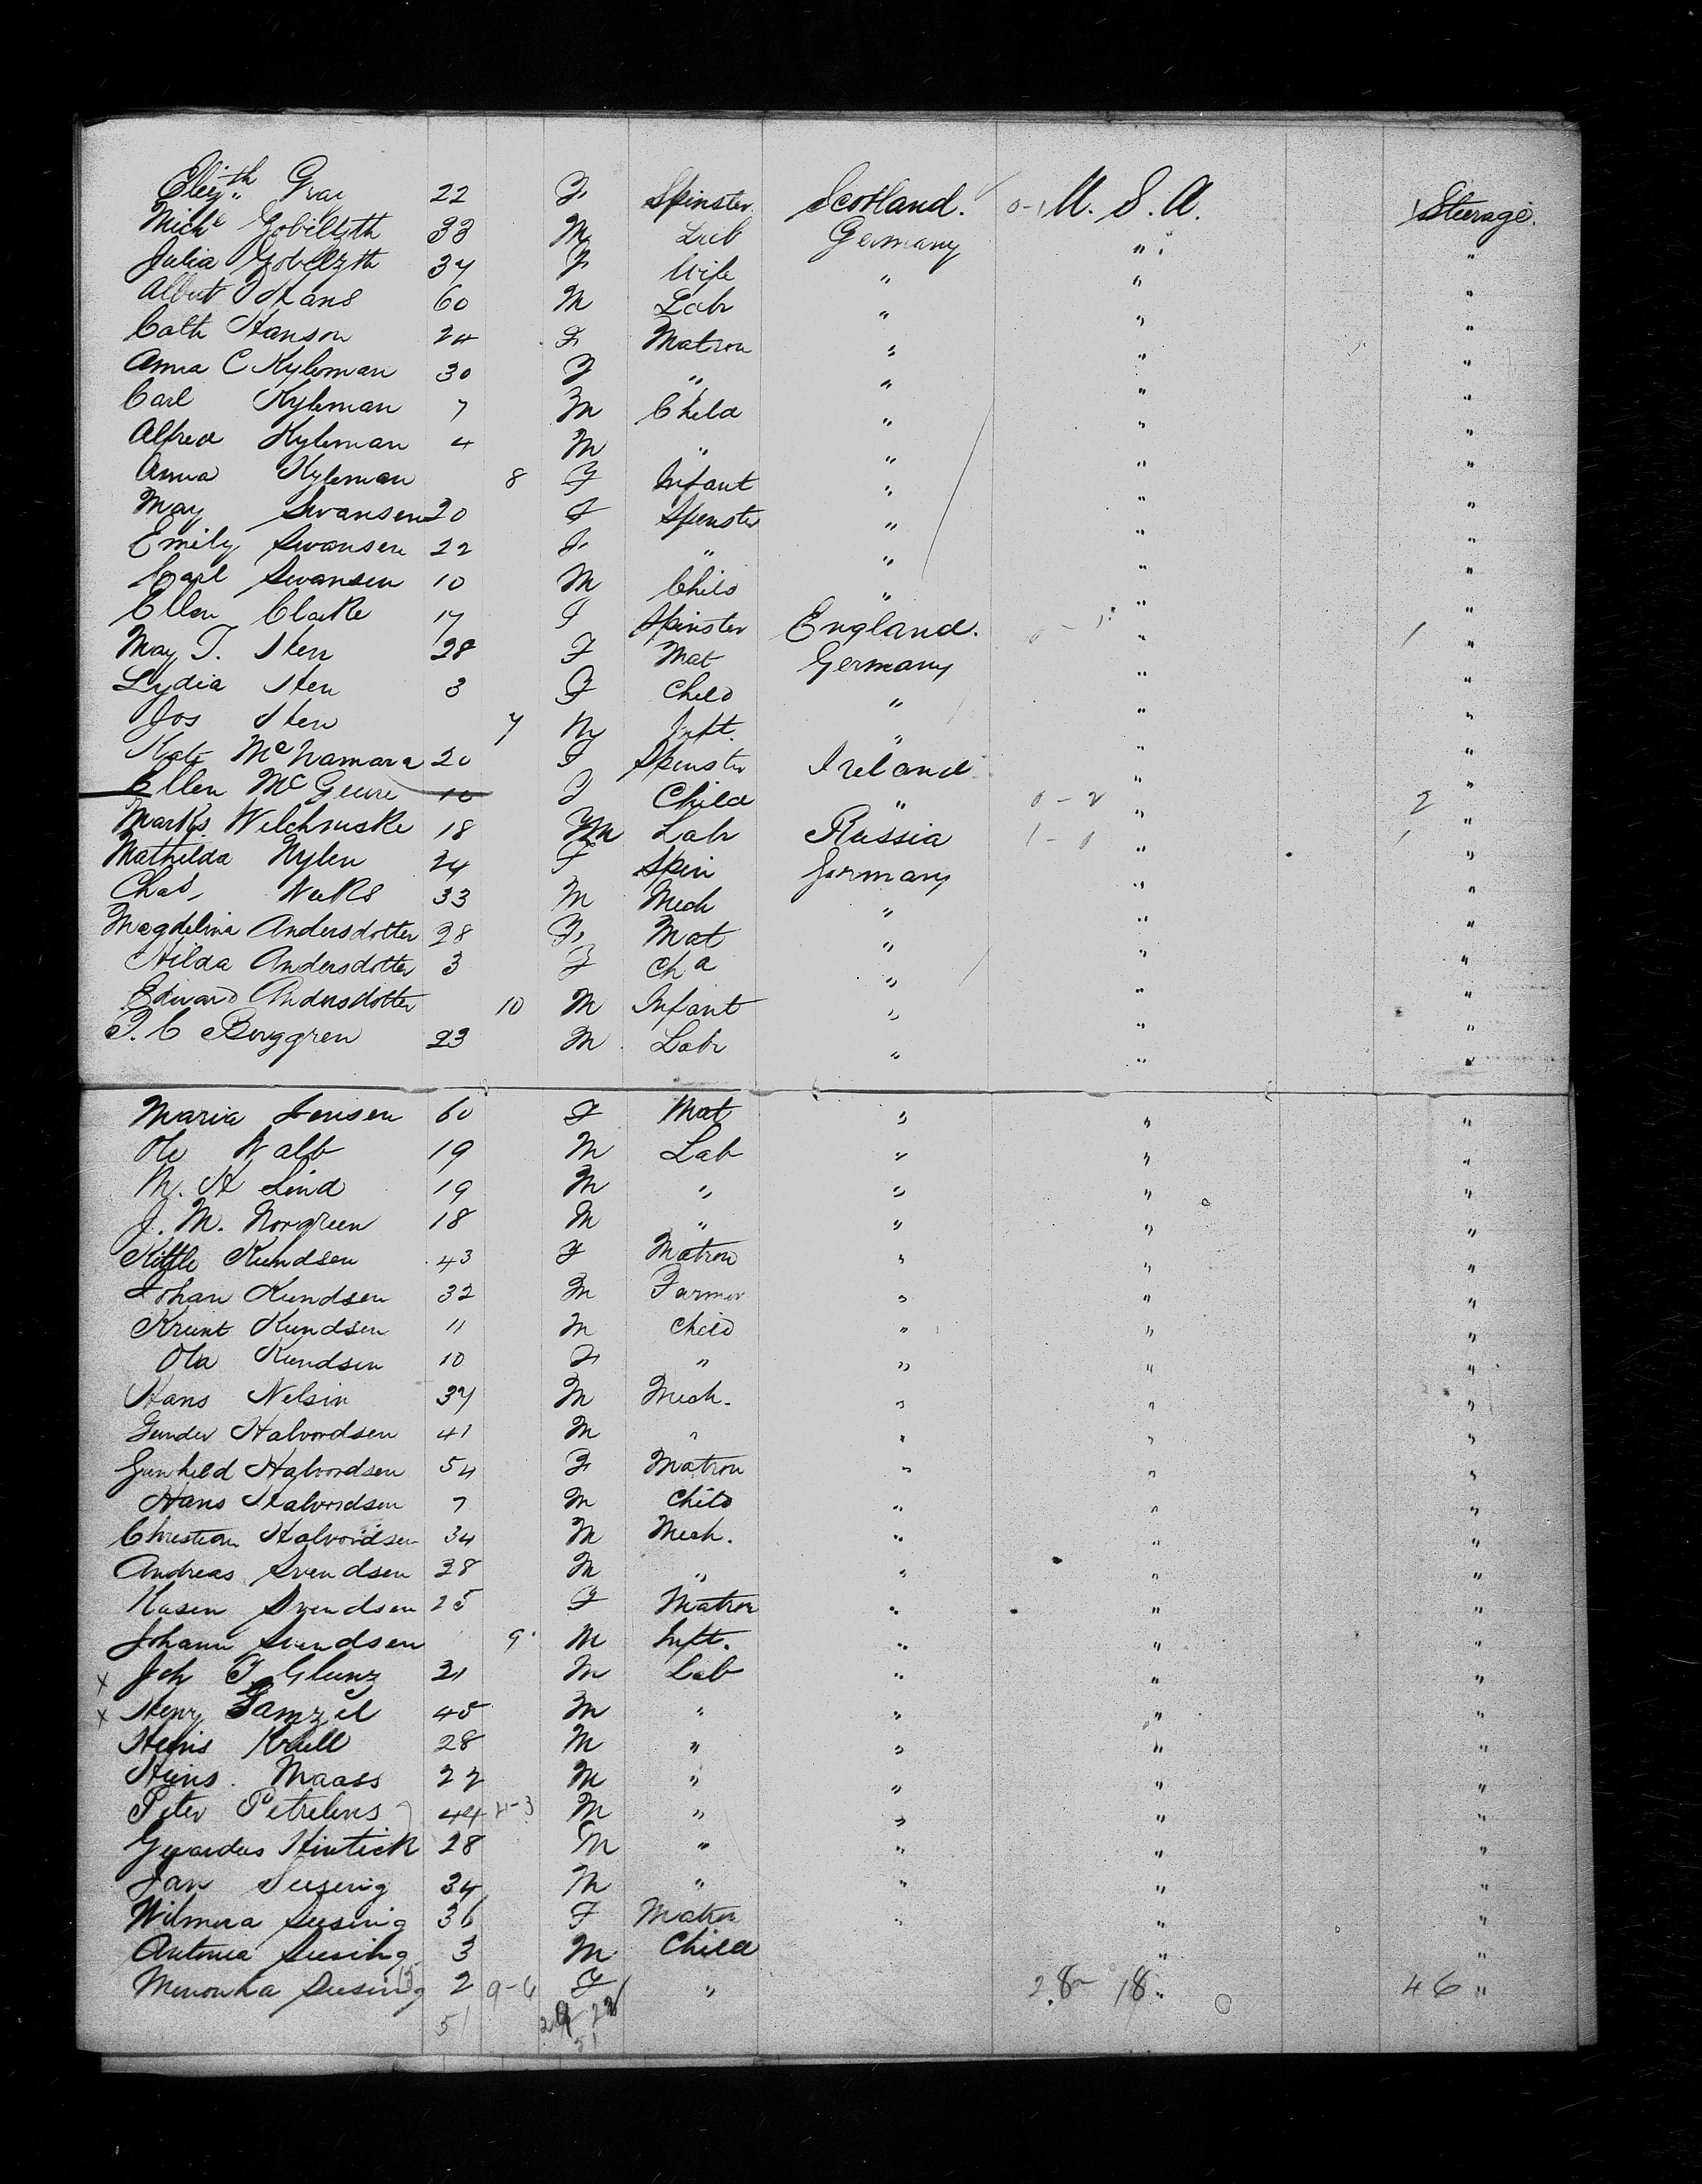 Elizth. Gray 22 F Spinster Scotland. 0-1 U. S. A. 1 Steerage.
Michl 33 M Lab Germany " "
Julia 37 F Wife " " "
Albert Hans 60 M Labr " " "
Cath Hanson 24 F Matron " " "
Anna C Kyleman 30 F " " " "
Carl Kyleman 7 M Child " " "
Alfred Kyleman 4 M " " " "
Anna Kyleman 8 F Infant " " "
May Swansen 20 F Spinster " " "
Emily Swansen 22 F " " " "
Carl Swansen 10 M Child " " "
Ellen Clarke 17 F Spinster England. 0-1 " 1 "
May T. Sten 28 F Mat Germany " "
Lydia Sten 3 F Child " " "
Jos Sten 7 M Inft. " " "
Kate McNamara 20 F Spinster Ireland " "
Ellen McGuire 10 F Child " 0-2 " 2 "
Marks 18 M Labr Russia 1-0 " 1 "
Mathilda Nylen 24 F Spin Germany " "
Chas. 33 M Mech " " "
Magdelina Andersdotter 28 F Mat " " "
Hilda Andersdotter 3 F Chd " " "
Edward Andersdotter 10 M Infant " " "
P. C Berggren 23 M Labr " " "
Maria Jensen 60 F Mat " " "
Ole Walb 19 M Lab " " "
M. H Lind 19 M " " " "
J. M. Norgreen 18 M " " " "
Kittle Kundsen 43 F Matron " " "
Johan Kundsen 32 M Farmer " " "
Knunt Kundsen 11 M Child " " "
Ola Kundsen 10 F " " " "
Hans Nelsin 37 M Mech. " " "
Gunder Halvordsen 41 M " " " "
Gunhild Halvordsen 54 F Matron " " "
Hans Halvordsen 7 M Child " " "
Christian Halvordsen 34 M Mech. " " "
Andreas Svendsen 28 M " " " "
Kasen Svendsen 25 F Matron " " "
Johann Svendsen 9 M Inft. " " "
x Joh Glunz 21 M Lab " " "
x Henry 45 M " " " "
Heins Krull 28 M " " " "
Heins. Maass 22 M " " " "
Peter 44 M " " " "
Gerardus Hintick 28 M " " " "
Jan Seesing 34 M " " " "
Wilmina Seesing 36 F Matron " " "
Antonia Seesing 3 M Child " "
Seesing 2 9-6 F " 28-18 " 46 "
51 29 22
51